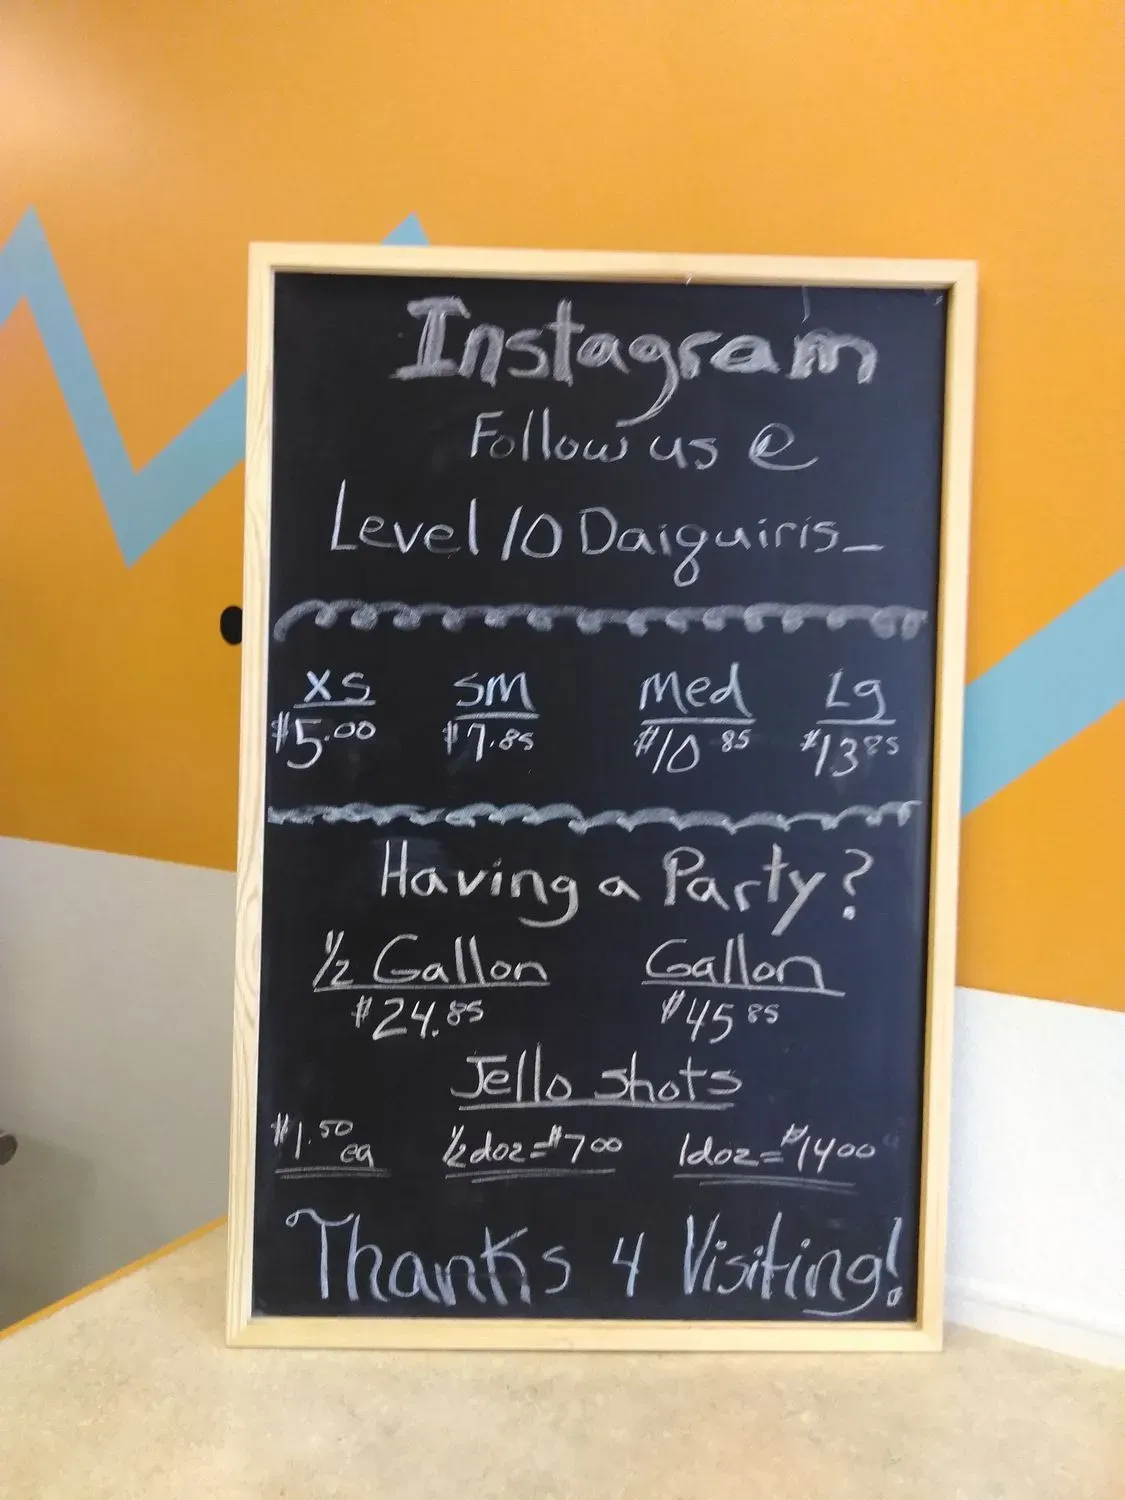 Instagram
Follow us @
Level 10 Daiquiris_
XS SM Med Lg
$5.00 $7.85 $10 85 $13 85
Having a Party?
1/2 Gallon Gallon
$24.85 $45 85
Jello shots
$1.50 ea 1/2 doz=$7 00 1doz=$14 00
Thanks 4 Visiting!